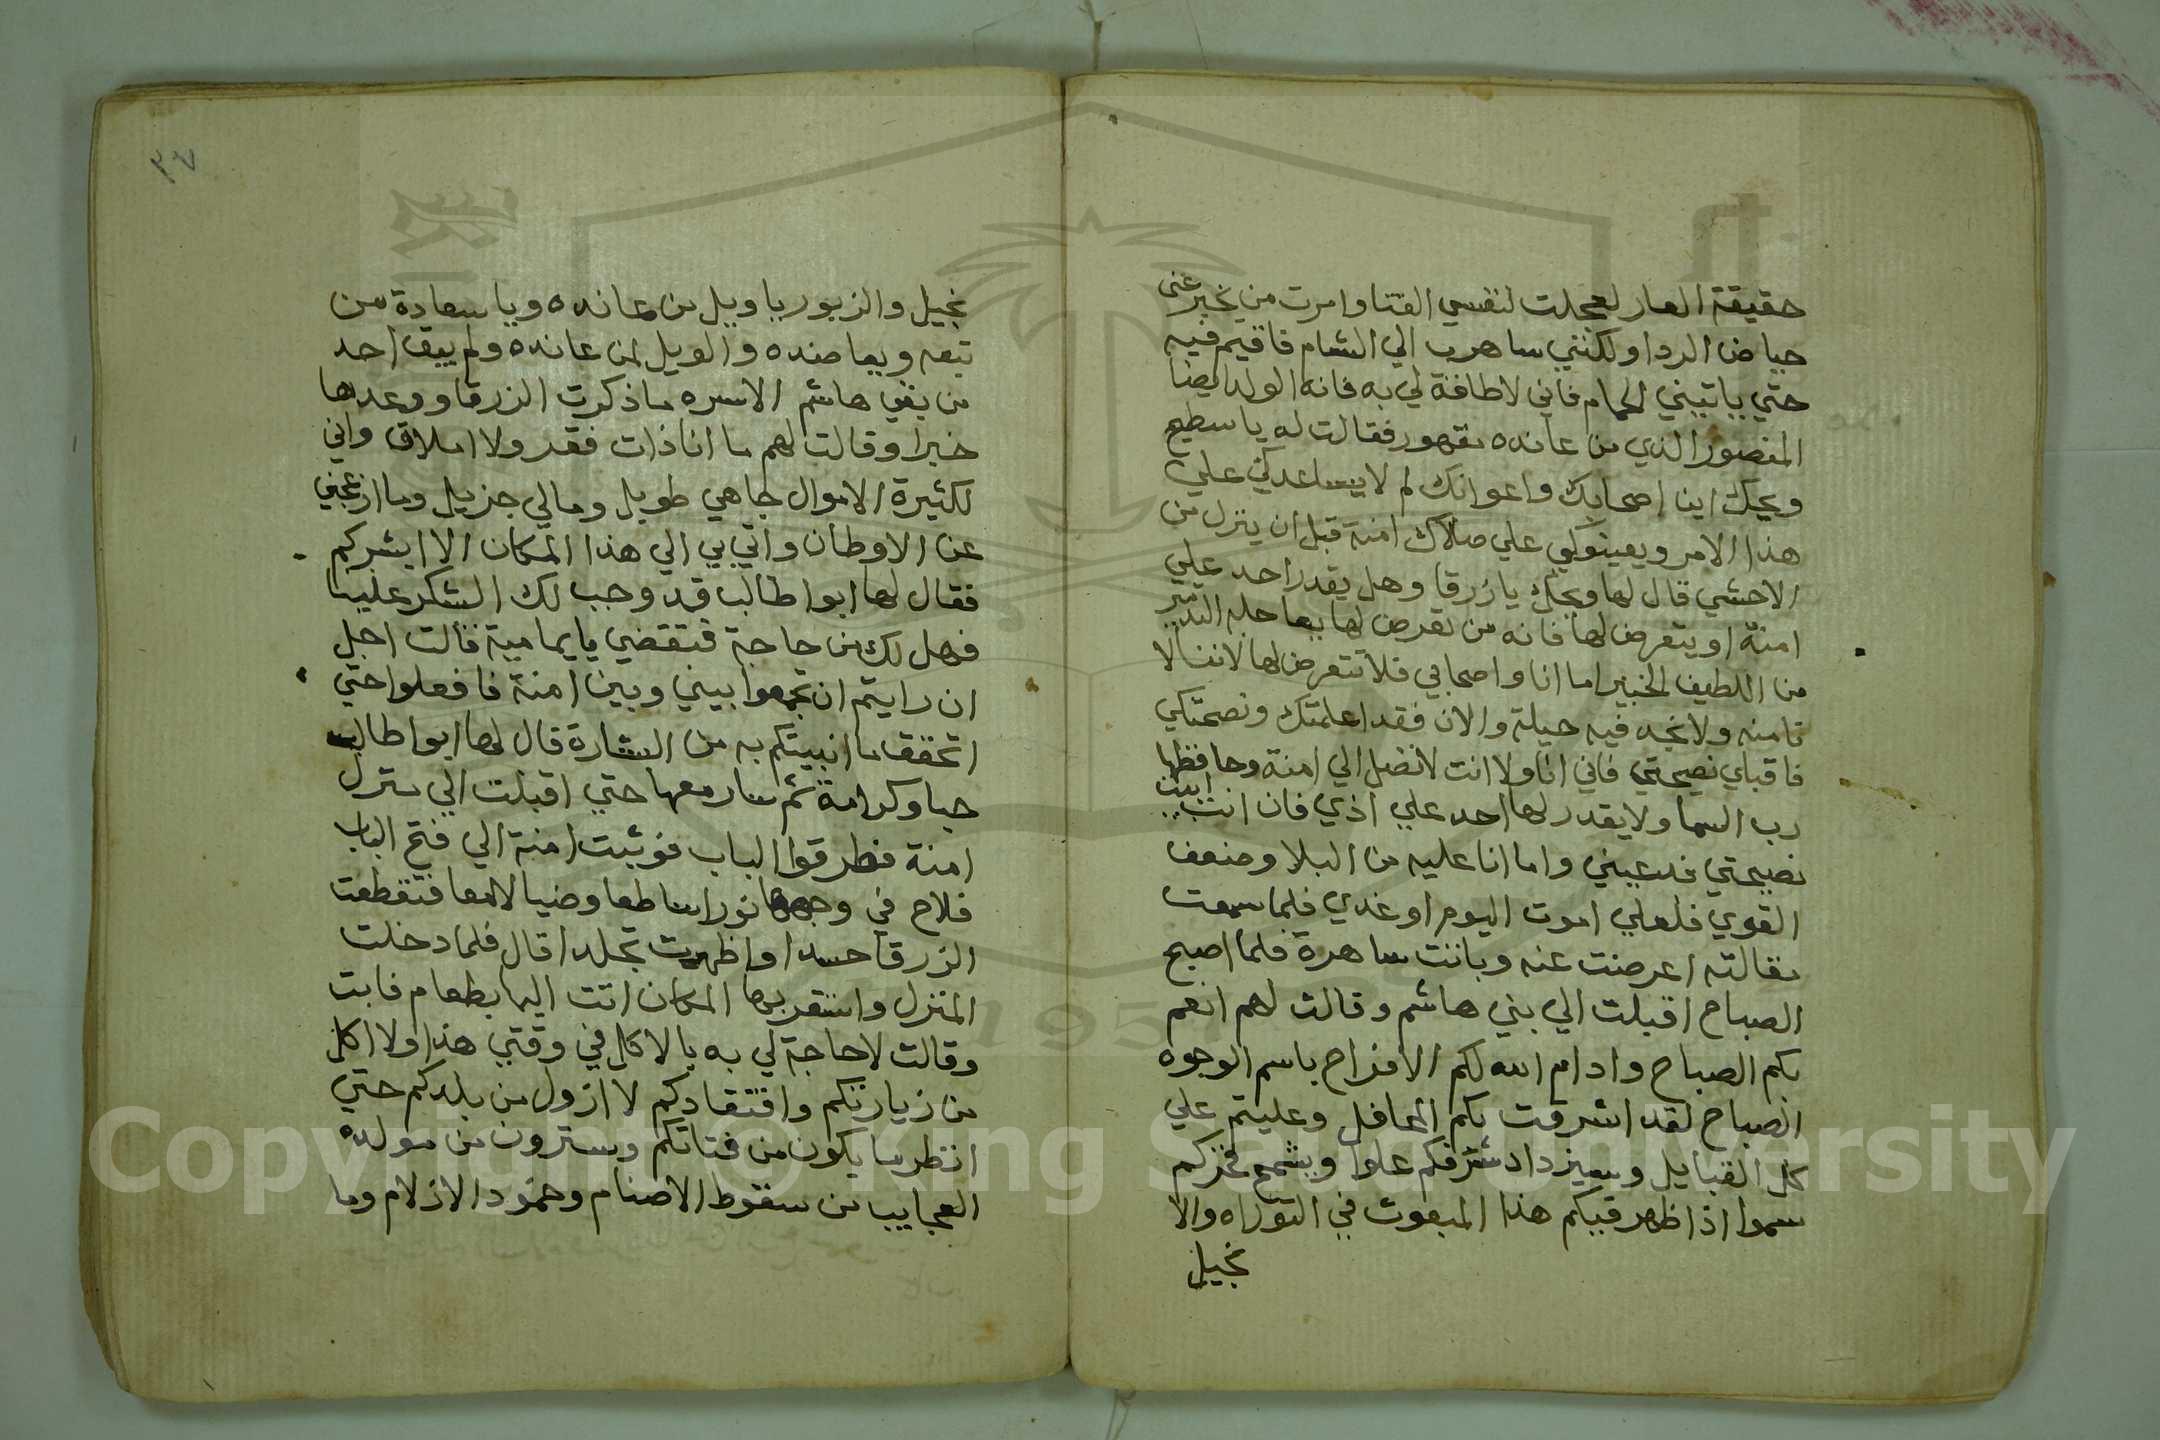 حقيقة العار لعجلت لنفسي الفنا وامرت من يخبر عني
حياض الردا ولكنني ساهرب الي الشام فاقيم فيه
حتي ياتيني الحمام فاني لا طاقة لي به فانه الولد ايضا
المنصور الذي من عانده مقهور فقالت له يا سطيح
ويحك اين اصحابك واعوانك لم لا يساعدكي علي
هذا الامر ويعينوكي علي هلاك امنة قبل ان ينزل من
الاحشي قال لها ويحك يا زرقا وهل يقدر احد علي
امنة او يتعرض لها فانه من تعرض لها يعاجله التدمير
من اللطيف الخبير اما انا واصحابي فلا نتعرض لها لاننا لا
نامنه ولا نجد فيه حيلة والان فقد اعلمتك ونصحتكي
فاقبلي نصيحتي فاني انا ولا انت لا نصل الي امنة وحافظها
رب السما ولا يقدر لها احد علي اذي فان انت ابيت
نصيحتي فدعيني واما انا عليه من البلا وضعف
القوي فلعلي اموت اليوم او غدي فلما سمعت
مقالته اعرضت عنه وباتت ساهرة فلما اصبح
الصباح اقبلت الي بني هاشم وقالت لهم انعم
بكم الصباح وادام الله لكم الافراح باسم الوجوه
الصباح لقد اشرقت بكم المحافل وعليتم علي
كل القبايل وسيزداد شرفكم علوا ويشمخ فخركم
سموا اذا ظهر فيكم هذا المبعوث في التوراه والا
نجيل
٣٧
نجيل والزبور يا ويل من عانده ويا سعادة من
تبعه ويعاضده والويل لمن عانده ولم يبق احد
من بني هاشم الا سره ما ذكرت الزرقا ووعدها
خيرا وقالت لهم ما انا ذات فقد ولا املاق واني
لكثيرة الاموال جاهي طويل ومالي جزيل وما ازعجني
عن الاوطان واتي بي الي هذا المكان الا ابشركم
فقال لها ابوا طالب قد وجب لك الشكر علينا
فهل لك من حاجة فتقضي يا يمامية قالت اجل
ان رايتم ان تجمعوا بيني وبين امنة فافعلوا حتي
اتحقق ما انبيتكم به من البشارة قال لها ابوا طالب
حبا وكرامة ثم سار معها حتي اقبلت الي منزل
امنة فطرقوا الباب فوثبت امنة الي فتح الباب
فلاح في وجهها نورا ساطعا وضيا لامعا فتقطعت
الزرقا حسدا واظهرت تجلدا قال فلما دخلت
المنزل واستقر بها المكان اتت اليها بطعام فابت
وقالت لا حاجة لي به بالاكل في وقتي هذا ولا اكل
من زيارتكم وافتقادكم لا ازول من بلدكم حتي
انظر ما يكون من فتاتكم وسترون من مولده
العجايب من سقوط الاصنام وخمود الازلام وما